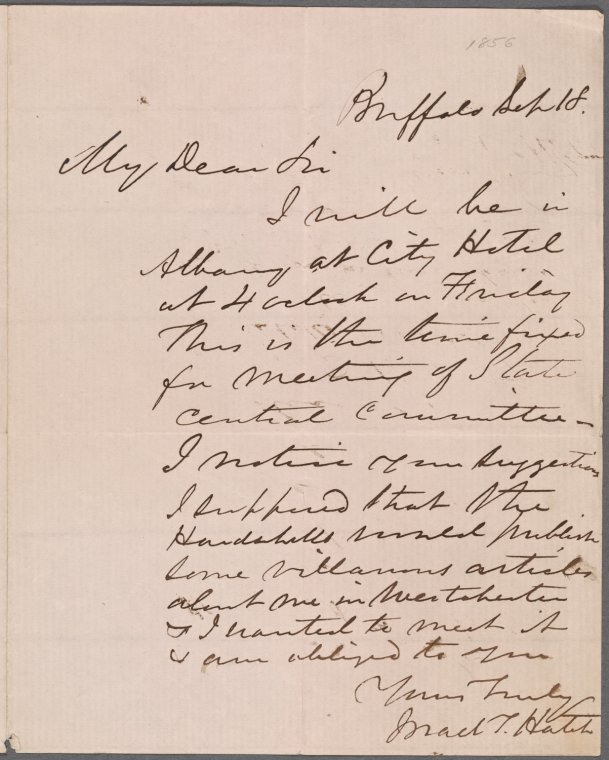 1856
Buffalo Sep 18.
My Dear Sir
I will be in
Albany at City Hotel
at 4 oclock on Friday
This is the time fixed
for meeting of State
central Committee –
I notice your suggestions
I supposed that the
Hardshells would publish
some villanous articles
about me in Westchester
& I wanted to meet it
& am obliged to you
Yours Truly
Israel T. Hatch